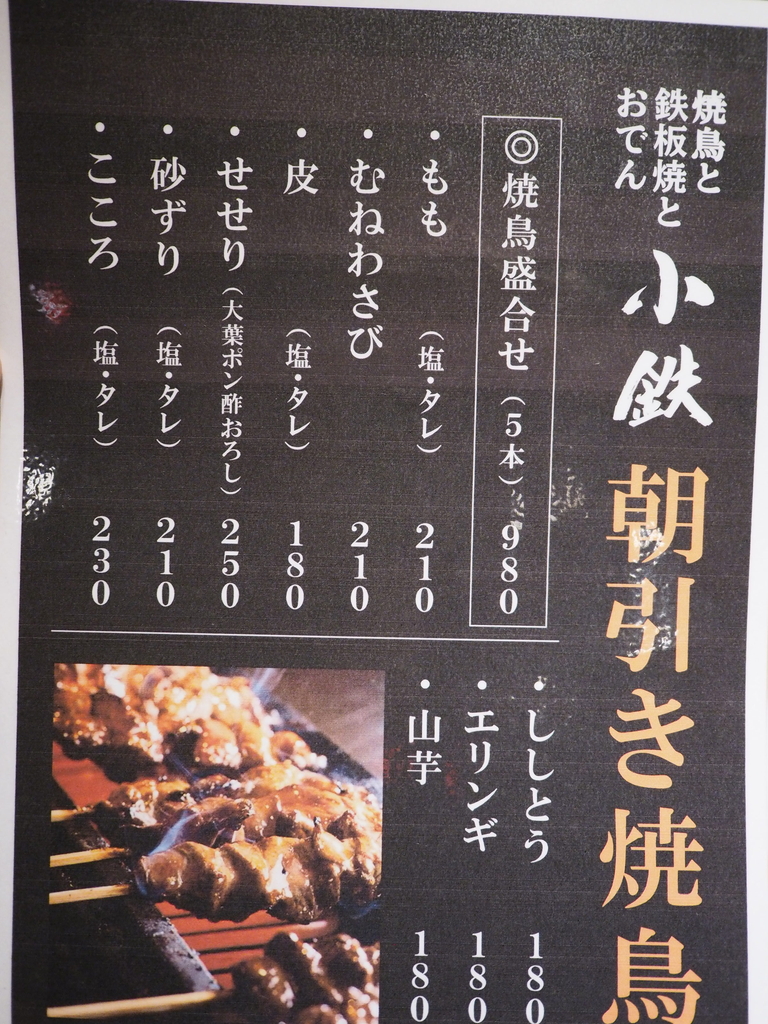 焼鳥と
鉄板焼と
おでん
小鉄
朝引き焼鳥
◎焼鳥盛合せ（5本）980
・もも（塩・タレ）210
・むねわさび 210
・皮（塩・タレ）180
・せせり（大葉ポン酢おろし）250
・砂ずり（塩・タレ）210
・こころ（塩・タレ）230
・ししとう 180
・エリンギ 180
・山芋 180